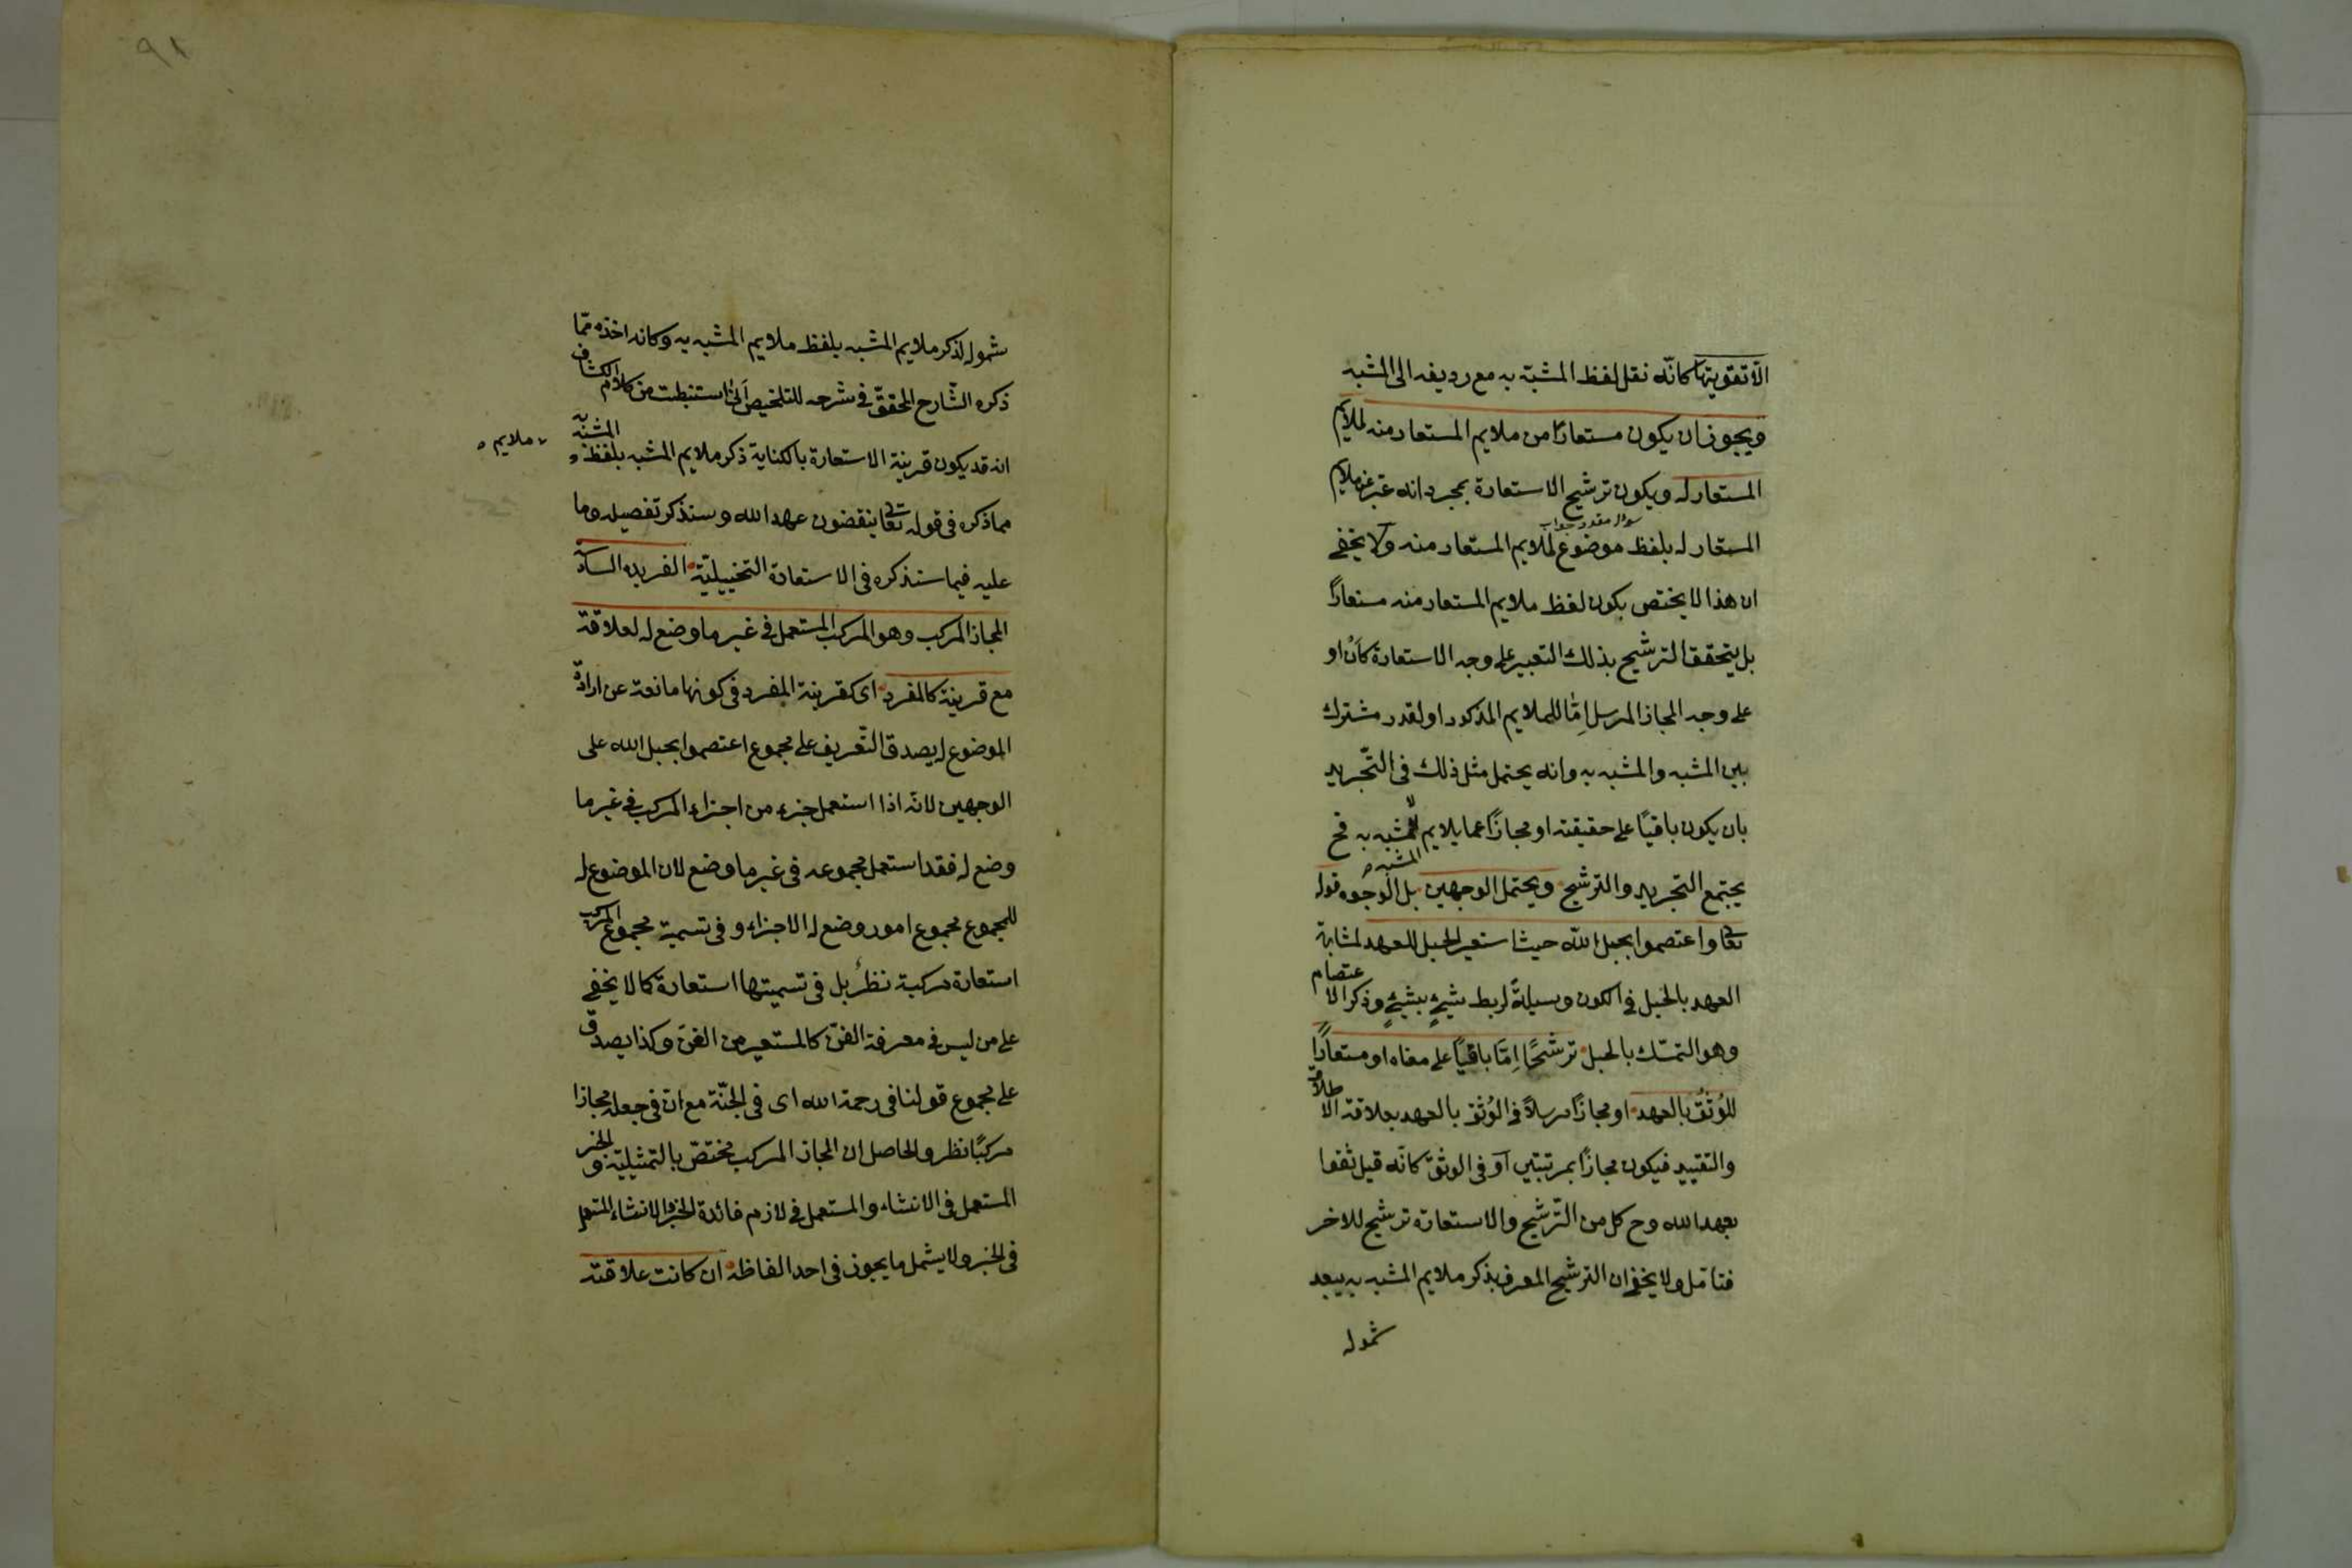 الّا تقويتها كانّه نقل لفظ المشبّه به مع رديفه الى المشبه
ويجوز ان يكون مستعارًا من ملايم المستعار منه لملايم
المستعار له ويكون ترشيح الاستعارة بمجرد انه عبّر عن ملايم
سؤال مقدر جواب
المستعار له بلفظ موضوع لملايم المستعار منه ولا يخفى
ان هذا لا يختص بكون لفظ ملايم المستعار منه مستعارًا
بل يتحقق الترشيح بذلك التعبير على وجه الاستعارة كان او
على وجه المجاز المرسل اِمّا للملايم المذكور او لقدر مشترك
بين المشبه والمشبه به وانه يحتمل مثل ذلك فى التّجريد
بان يكون باقيًا على حقيقته او مجازًا عما يلايم المشبه به فح
المشبه
يجتمع التجريد والترشيح ويحتمل الوجهين بل الوجوه قوله
تعا واعتصموا بحبل اللّه حيث استعير الحبل للعهد لمشابهة
العهد بالحبل فى الكون وسيلةً لربط شيءٍ بشيءٍ وذكر الاعتصام
وهو التمسّك بالحبل ترشحًا اِمّا باقيًا على معناه او مستعارًا
للوُثُقّ بالعهد او مجازًا مرسلاً فى الوُثق بالعهد بعلاقة الاطلاق
والتقييد فيكون مجازًا بمرتبتين آو فى الوثقّ كانّه قيل ثقوا
بعهد الله وح كل من الترّشيح والاستعارة ترشيح للاخر
فتامّل ولا يخفى ان الترشيح المعرف بذكر ملايم المشبه به يبعد
شموله
٩١
شموله لذكر ملايم المشبه بلفظ ملايم المشبه به وكانه اخذه ممّا
ذكره الشّارح المحققّ فى شرحه للتلخيص انّى استنبطت من كلام الكشاف
انه قد يكون قرينة الاستعارة بالكناية ذكر ملايم المشبه بلفظ المشبّه به
ملايم
مماذكره فى قوله تعا ينقضون عهد الله وسنذكر تفصيله وما
عليه فيما سنذكره فى الاستعارة التخييليّة الفريده السادّ
المجاز المركب وهو المركب المستعمل فى غير ما وضع له لعلاقة
مع قرينة كالمفرد اى كقرينة المفرد فى كونها مانعة عن ارادة
الموضوع له يصدق التّعريف على مجموع اعتصموا بحبل الله على
الوجهين لانّه اذا استعمل جزء من اجزاء المركب فى غير ما
وضع له فقد استعمل مجموعه فى غير ما وضع لان الموضوع له
للمجموع مجموع امور وضع له الاجزاء وفى تسمية مجموع المركب
استعارة مركبة نظرٌ بل فى تسميتها استعارة كما لا يخفى
على من ليس فى معرفة الفنّ كالمستعير من الغىّ وكذا يصدق
على مجموع قولنا فى رحمة الله اى فى الجنّة مع انّ فى جعله مجازا
مركبًا نظر والحاصل ان المجاز المركب مختصّ بالتمثيليّة والخبر
المستعمل فى الانشاء والمستعمل فى لازم فائدة الخبر والانشاء المستعمل
فى الخبر ولا يشمل ما يجوز فى احد الفاظه ان كانت علاقته